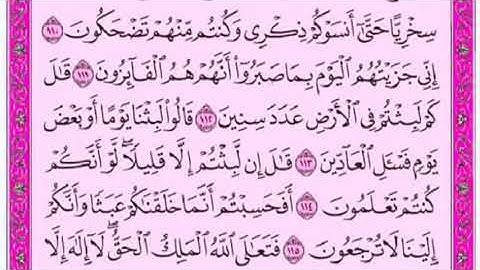 سِخْرِيًّا حَتَّىٰٓ أَنسَوْكُمْ ذِكْرِى وَكُنتُم مِّنْهُمْ تَضْحَكُونَ ١١٠
إِنِّى جَزَيْتُهُمُ ٱلْيَوْمَ بِمَا صَبَرُوٓا۟ أَنَّهُمْ هُمُ ٱلْفَآئِزُونَ ١١١ قَٰلَ
كَمْ لَبِثْتُمْ فِى ٱلْأَرْضِ عَدَدَ سِنِينَ ١١٢ قَالُوا۟ لَبِثْنَا يَوْمًا أَوْ بَعْضَ
يَوْمٍ فَسْـَٔلِ ٱلْعَآدِّينَ ١١٣ قَٰلَ إِن لَّبِثْتُمْ إِلَّا قَلِيلًا ۖ لَّوْ أَنَّكُمْ
كُنتُمْ تَعْلَمُونَ ١١٤ أَفَحَسِبْتُمْ أَنَّمَا خَلَقْنَٰكُمْ عَبَثًا وَأَنَّكُمْ
إِلَيْنَا لَا تُرْجَعُونَ ١١٥ فَتَعَٰلَى ٱللَّهُ ٱلْمَلِكُ ٱلْحَقُّ ۖ لَآ إِلَٰهَ إِلَّا